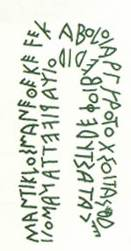 ΜΑΝΤΙΚΛΟΣΜΑΝΕΘΕΚΕϜΕΚΑΒΟΛΟΙΑΡΓΥΡΟΤΟΧΣΟΙΤΑΣΔΔΕ
ΚΑΤΑΣΤΥΔΕΦΟΙΒΕΔΙΔΟΙΧΑΡΙϜΕΤΤΑΝΑΜΟΙ